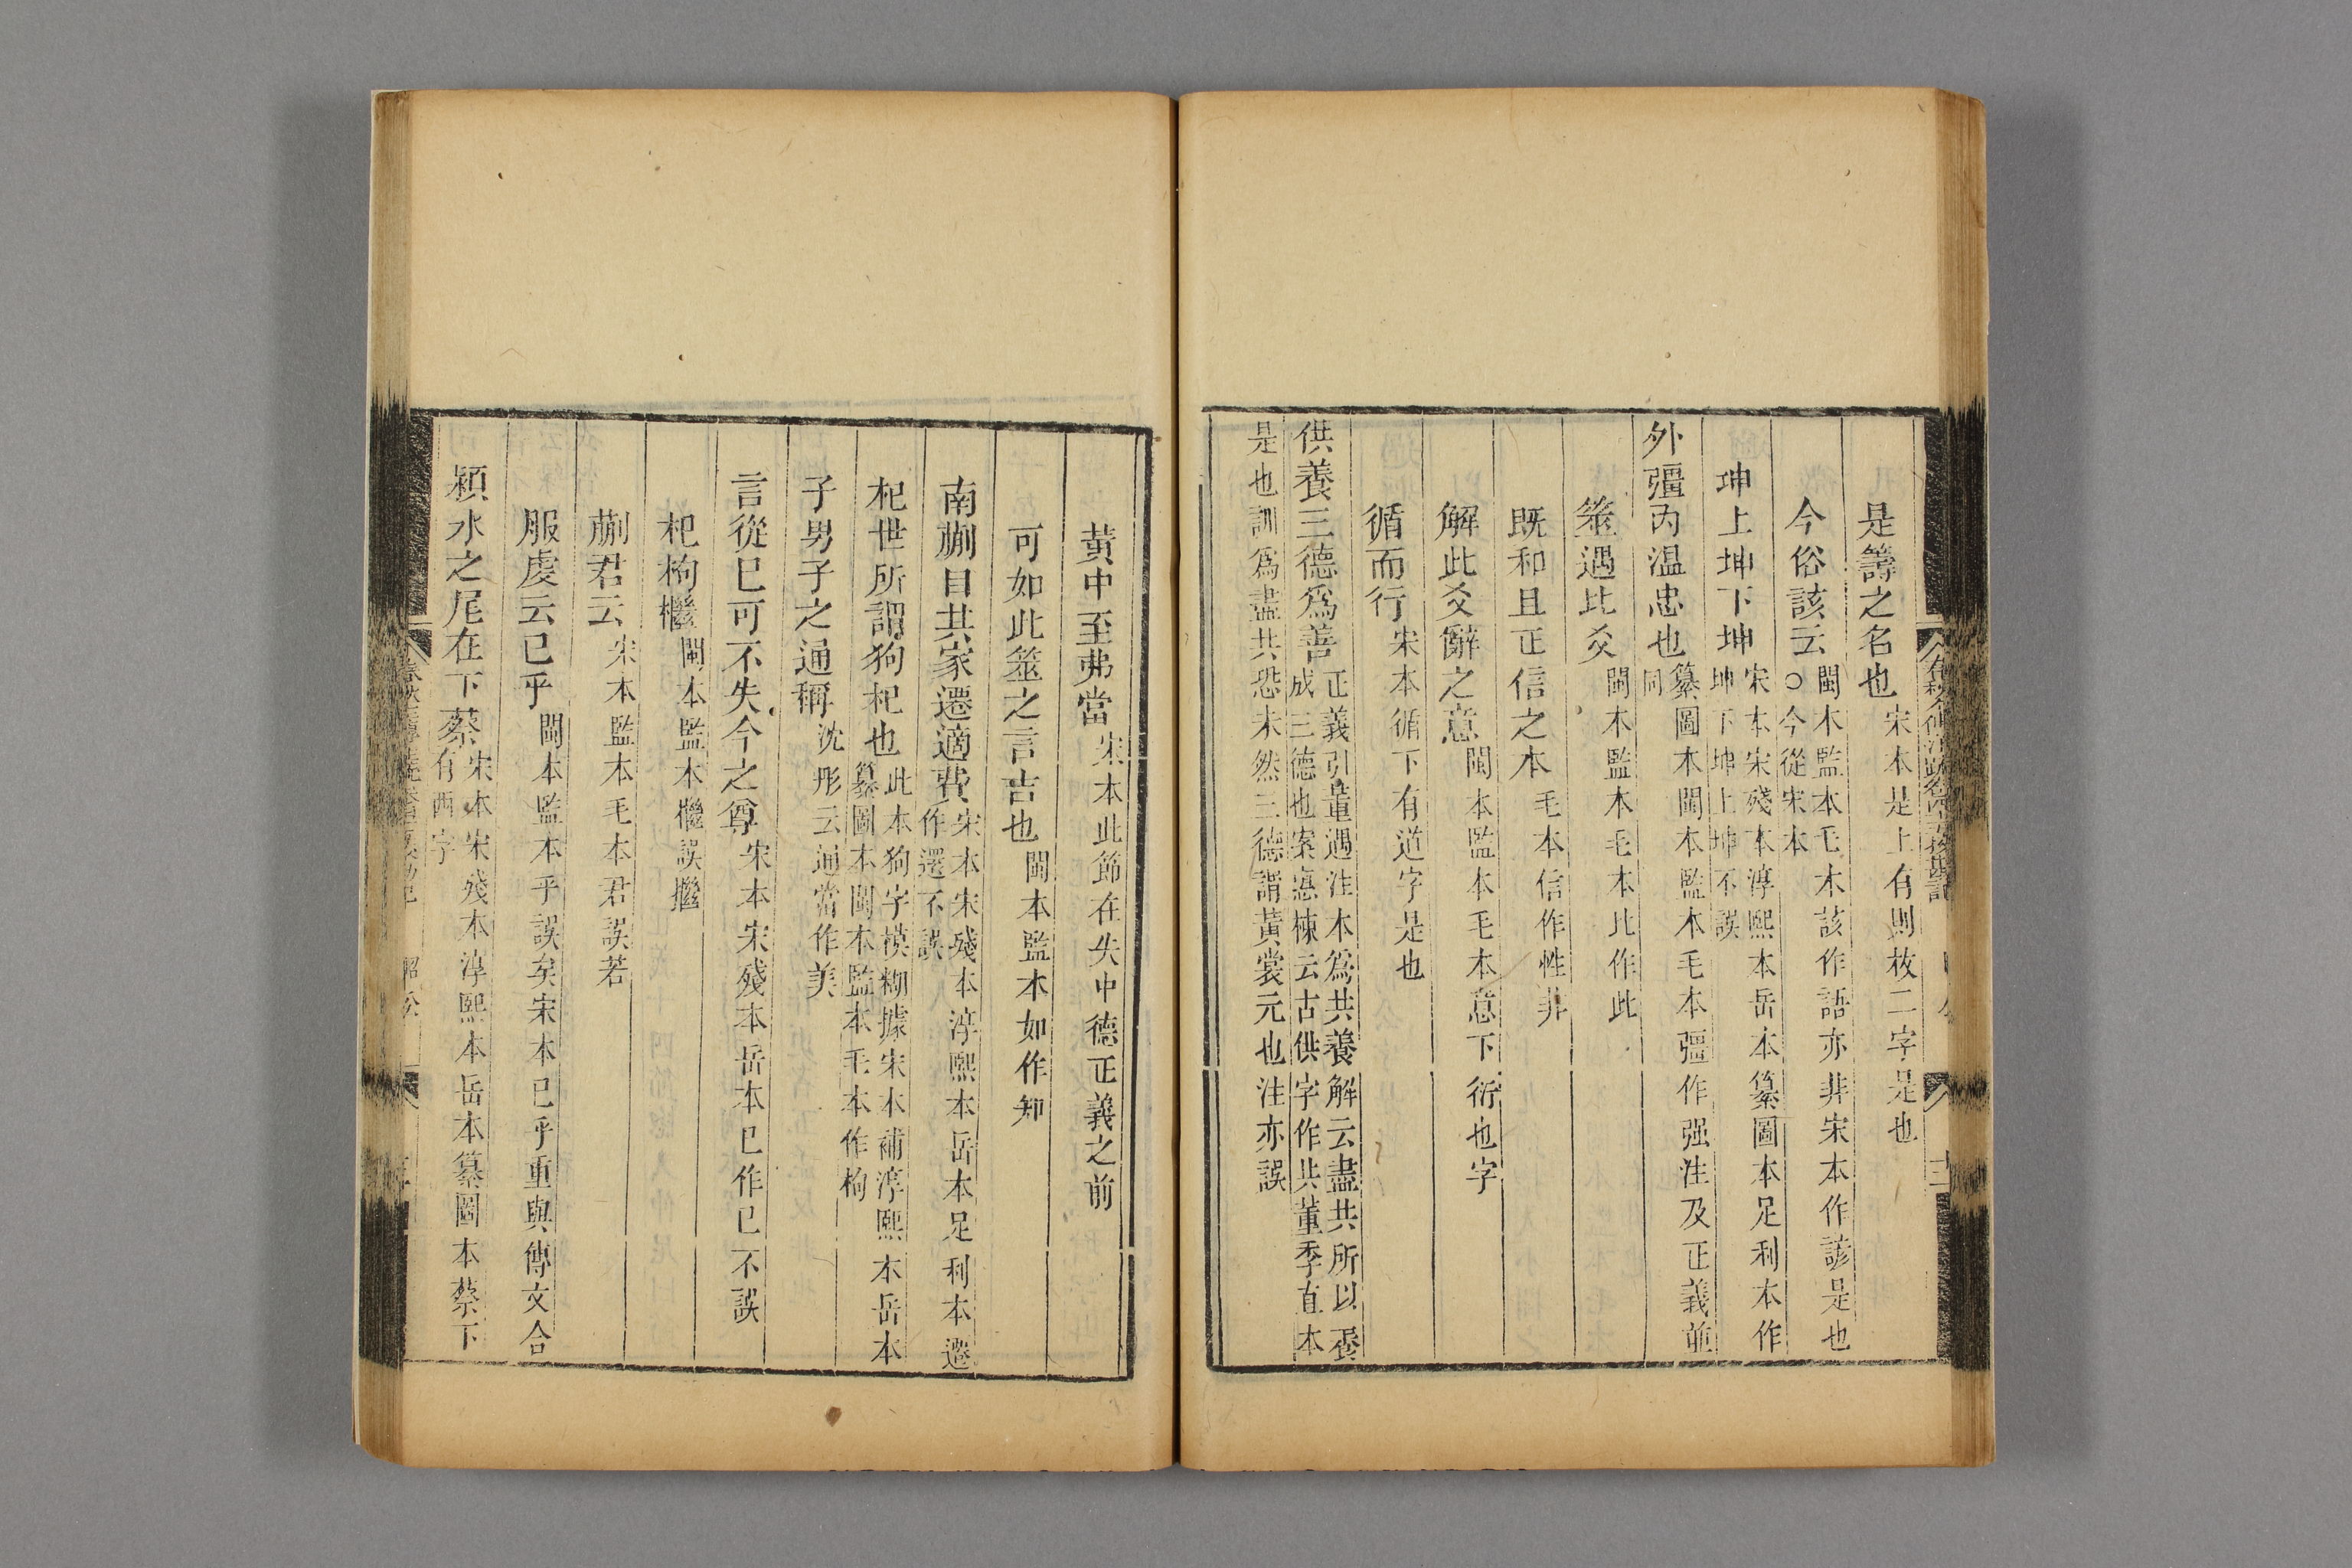 是籌之名也宋本是上有則枚二字是也
今俗該云閩本監本毛本該作語亦非宋本作諺是也
○今從宋本
坤上坤下坤宋本宋殘本淳熙本岳本纂圖本足利本作
坤下坤上坤不誤
外彊內温忠也纂圖本閩本監本毛本彊作强注及正義並
同
筮遇比爻閩本監本毛本比作此
既和且正信之本毛本信作性非
解此爻辭之意閩本監本毛本意下衍也字
循而行宋本循下有道字是也
供養三德爲善正義引董遇注本爲共養解云盡共所以養
成三德也案惠棟云古供字作共董季直本
是也訓爲盡共恐未然三德謂黃裳元也注亦誤
黃中至弗當宋本此節在失中德正義之前
可如此筮之言吉也閩本監本如作知
南蒯目其家遷適費宋本宋殘本淳熙本岳本足利本遷
作還不誤
杞世所謂狗杞也此本狗字模糊據宋本補淳熙本岳本
纂圖本閩本監本毛本作枸
子男子之通稱沈彤云通當作美
言從已可不失今之尊宋本宋殘本岳本已作己不誤
杞枸檵閩本監本檵誤繼
蒯君云宋本監本毛本君誤若
服虔云已乎閩本監本乎誤矣宋本已乎重與傳文合
潁水之尾在下蔡宋本宋殘本淳熙本岳本纂圖本蔡下
有西字